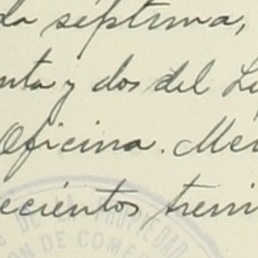 da séptima,
nta y dos del L
Oficina. Me
ecientos trein
PROPIEDAD
ON DE COMER